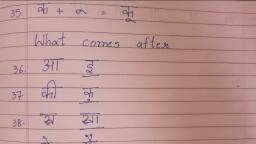 35 क + ૂ = कू
What comes after
36. आ इ
37 की कु
38. स सा